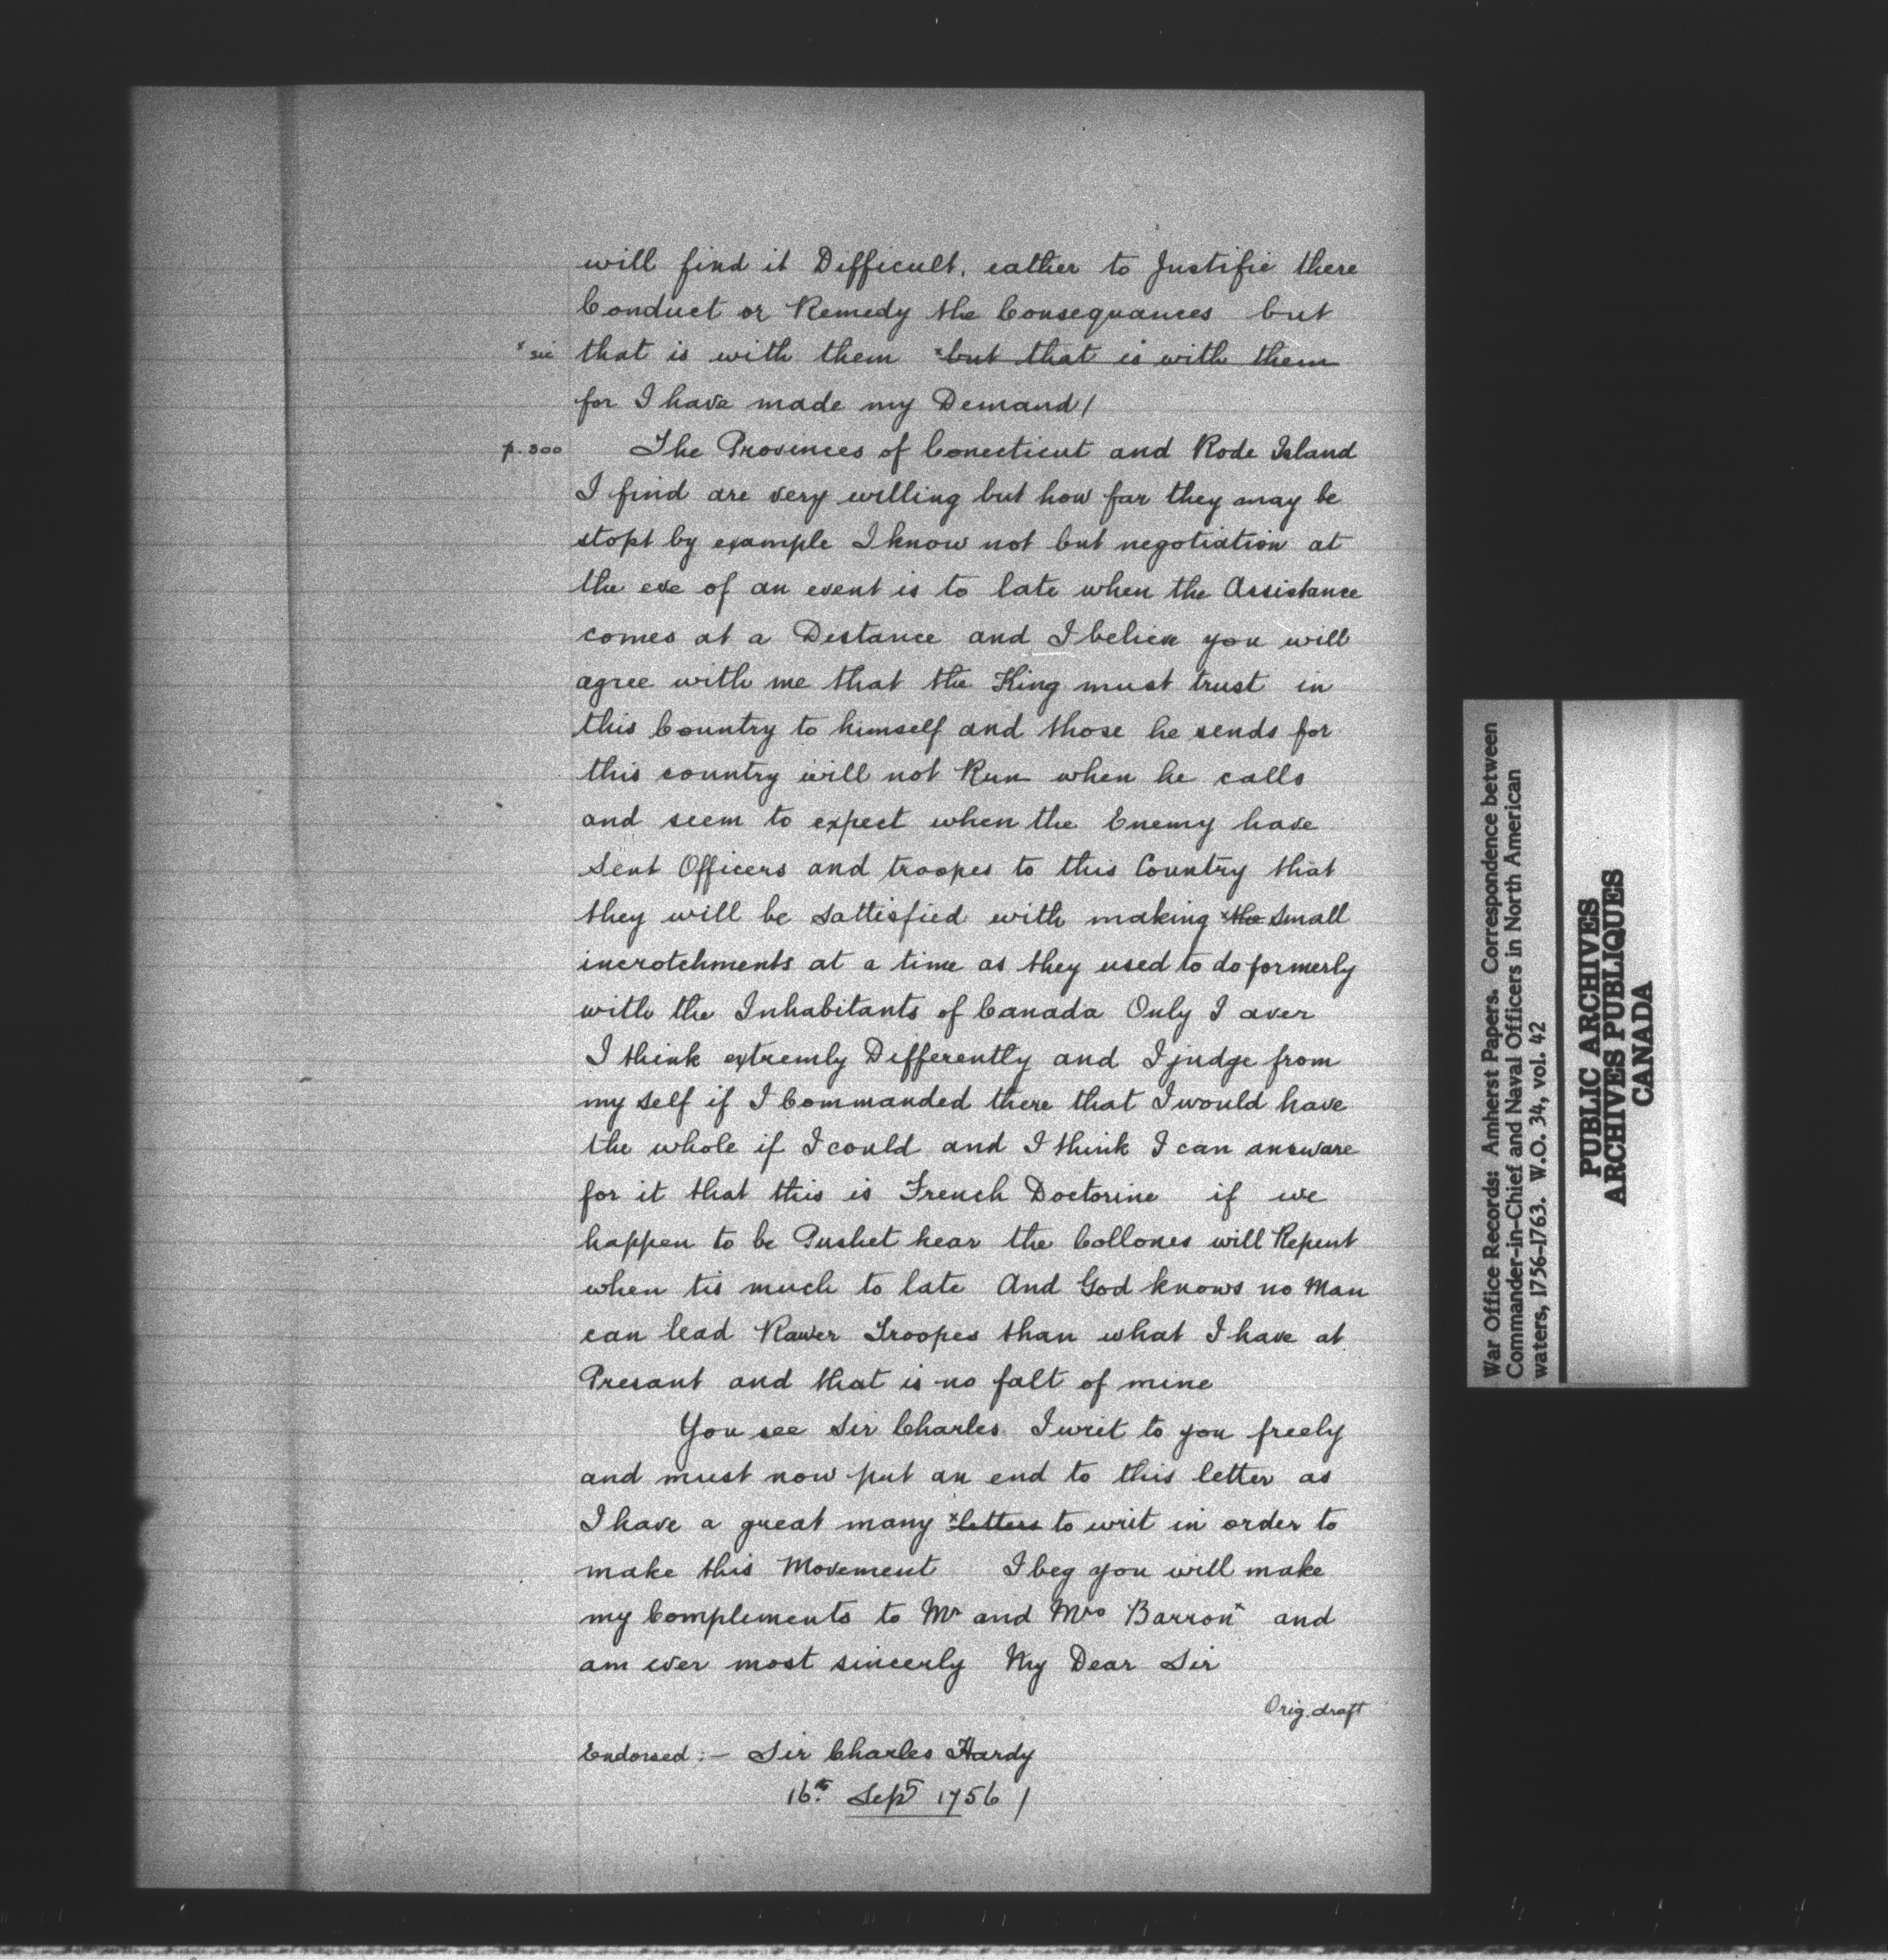 will find it Difficult, eather to Justifie there
Conduct or Remedy the Consequances but
x sic that is with them x but that is with them
for I have made my Demand/
p. 300 The Provinces of Conecticut and Rode Island
I find are very willing but how far they may be
stopt by example I know not but negotiation at
the eve of an event is to late when the Assistance
comes at a Distance and I believe you will
agree with me that the King must trust in
this Country to himself and those he sends for
this country will not Run when he calls
and seem to expect when the Enemy have
sent Officers and troopes to this Country that
they will be Sattisfied with making x the Small
incrotchments at a time as they used to do formerly
with the Inhabitants of Canada Only I aver
I think extremly Differently and I judge from
my self if I Commanded there that I would have
the whole if I could and I think I can answare
for it that this is French Doctorine if we
happen to be Pushet hear the Collones will Repent
when tis much to late And God knows no Man
can lead Rawer Troopes than what I have at
Presant and that is no falt of mine
You see Sir Charles I writ to you freely
and must now put an end to this letter as
I have a great many x letters to writ in order to
make this Movement I beg you will make
my Complements to Mr and Mrs Barron x and
am ever most sincerly My Dear Sir
Orig. draft
Endorsed :- Sir Charles Hardy
16th Sept 1756 /
War Office Records: Amherst Papers. Correspondence between
Commander-in-Chief and Naval Officers in North American
waters, 1756-1763. W.O. 34, vol. 42
PUBLIC ARCHIVES
ARCHIVES PUBLIQUES
CANADA